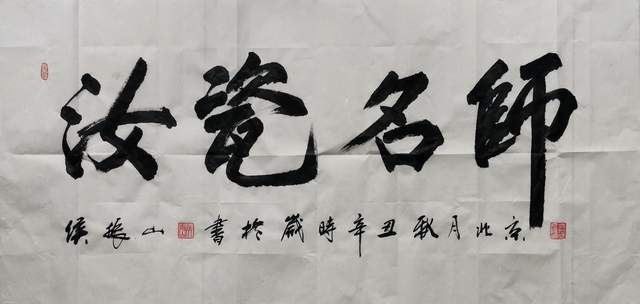 汝瓷名師
侯振山書於歲時辛丑秋月北京